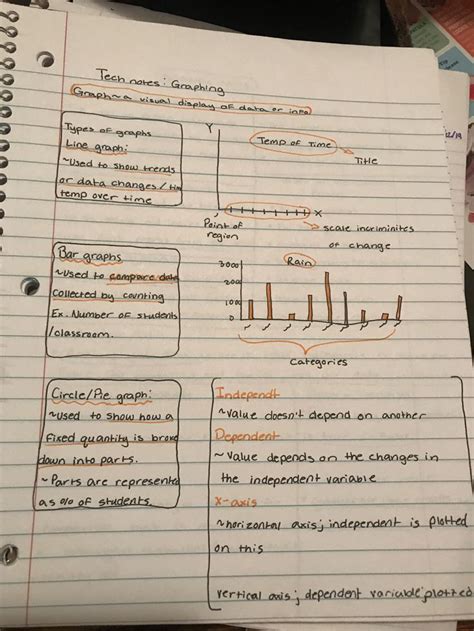 Tech notes: Graphing
Graph~a visual display of data or info
Types of graphs
Line graph:
~Used to show trends
or data changes / tim
temp over time
Y
Temp of Time
Title
X
Point of
region
scale incriminites
of change
12/19
Bar graphs
~Used to compare data
collected by counting
Ex. Number of students
/classroom.
3000
200
1000
0
Rain
Categories
Circle/Pie graph:
~Used to show how a
Fixed quantity is brok
down into parts.
~Parts are represente
as % of students.
Independt
~Value doesn't depend on another
Dependent
~ Value depends on the changes in
the independent variable
X-axis
~horizontal axis; independent is plotted
on this
vertical axis; dependent variable plotted